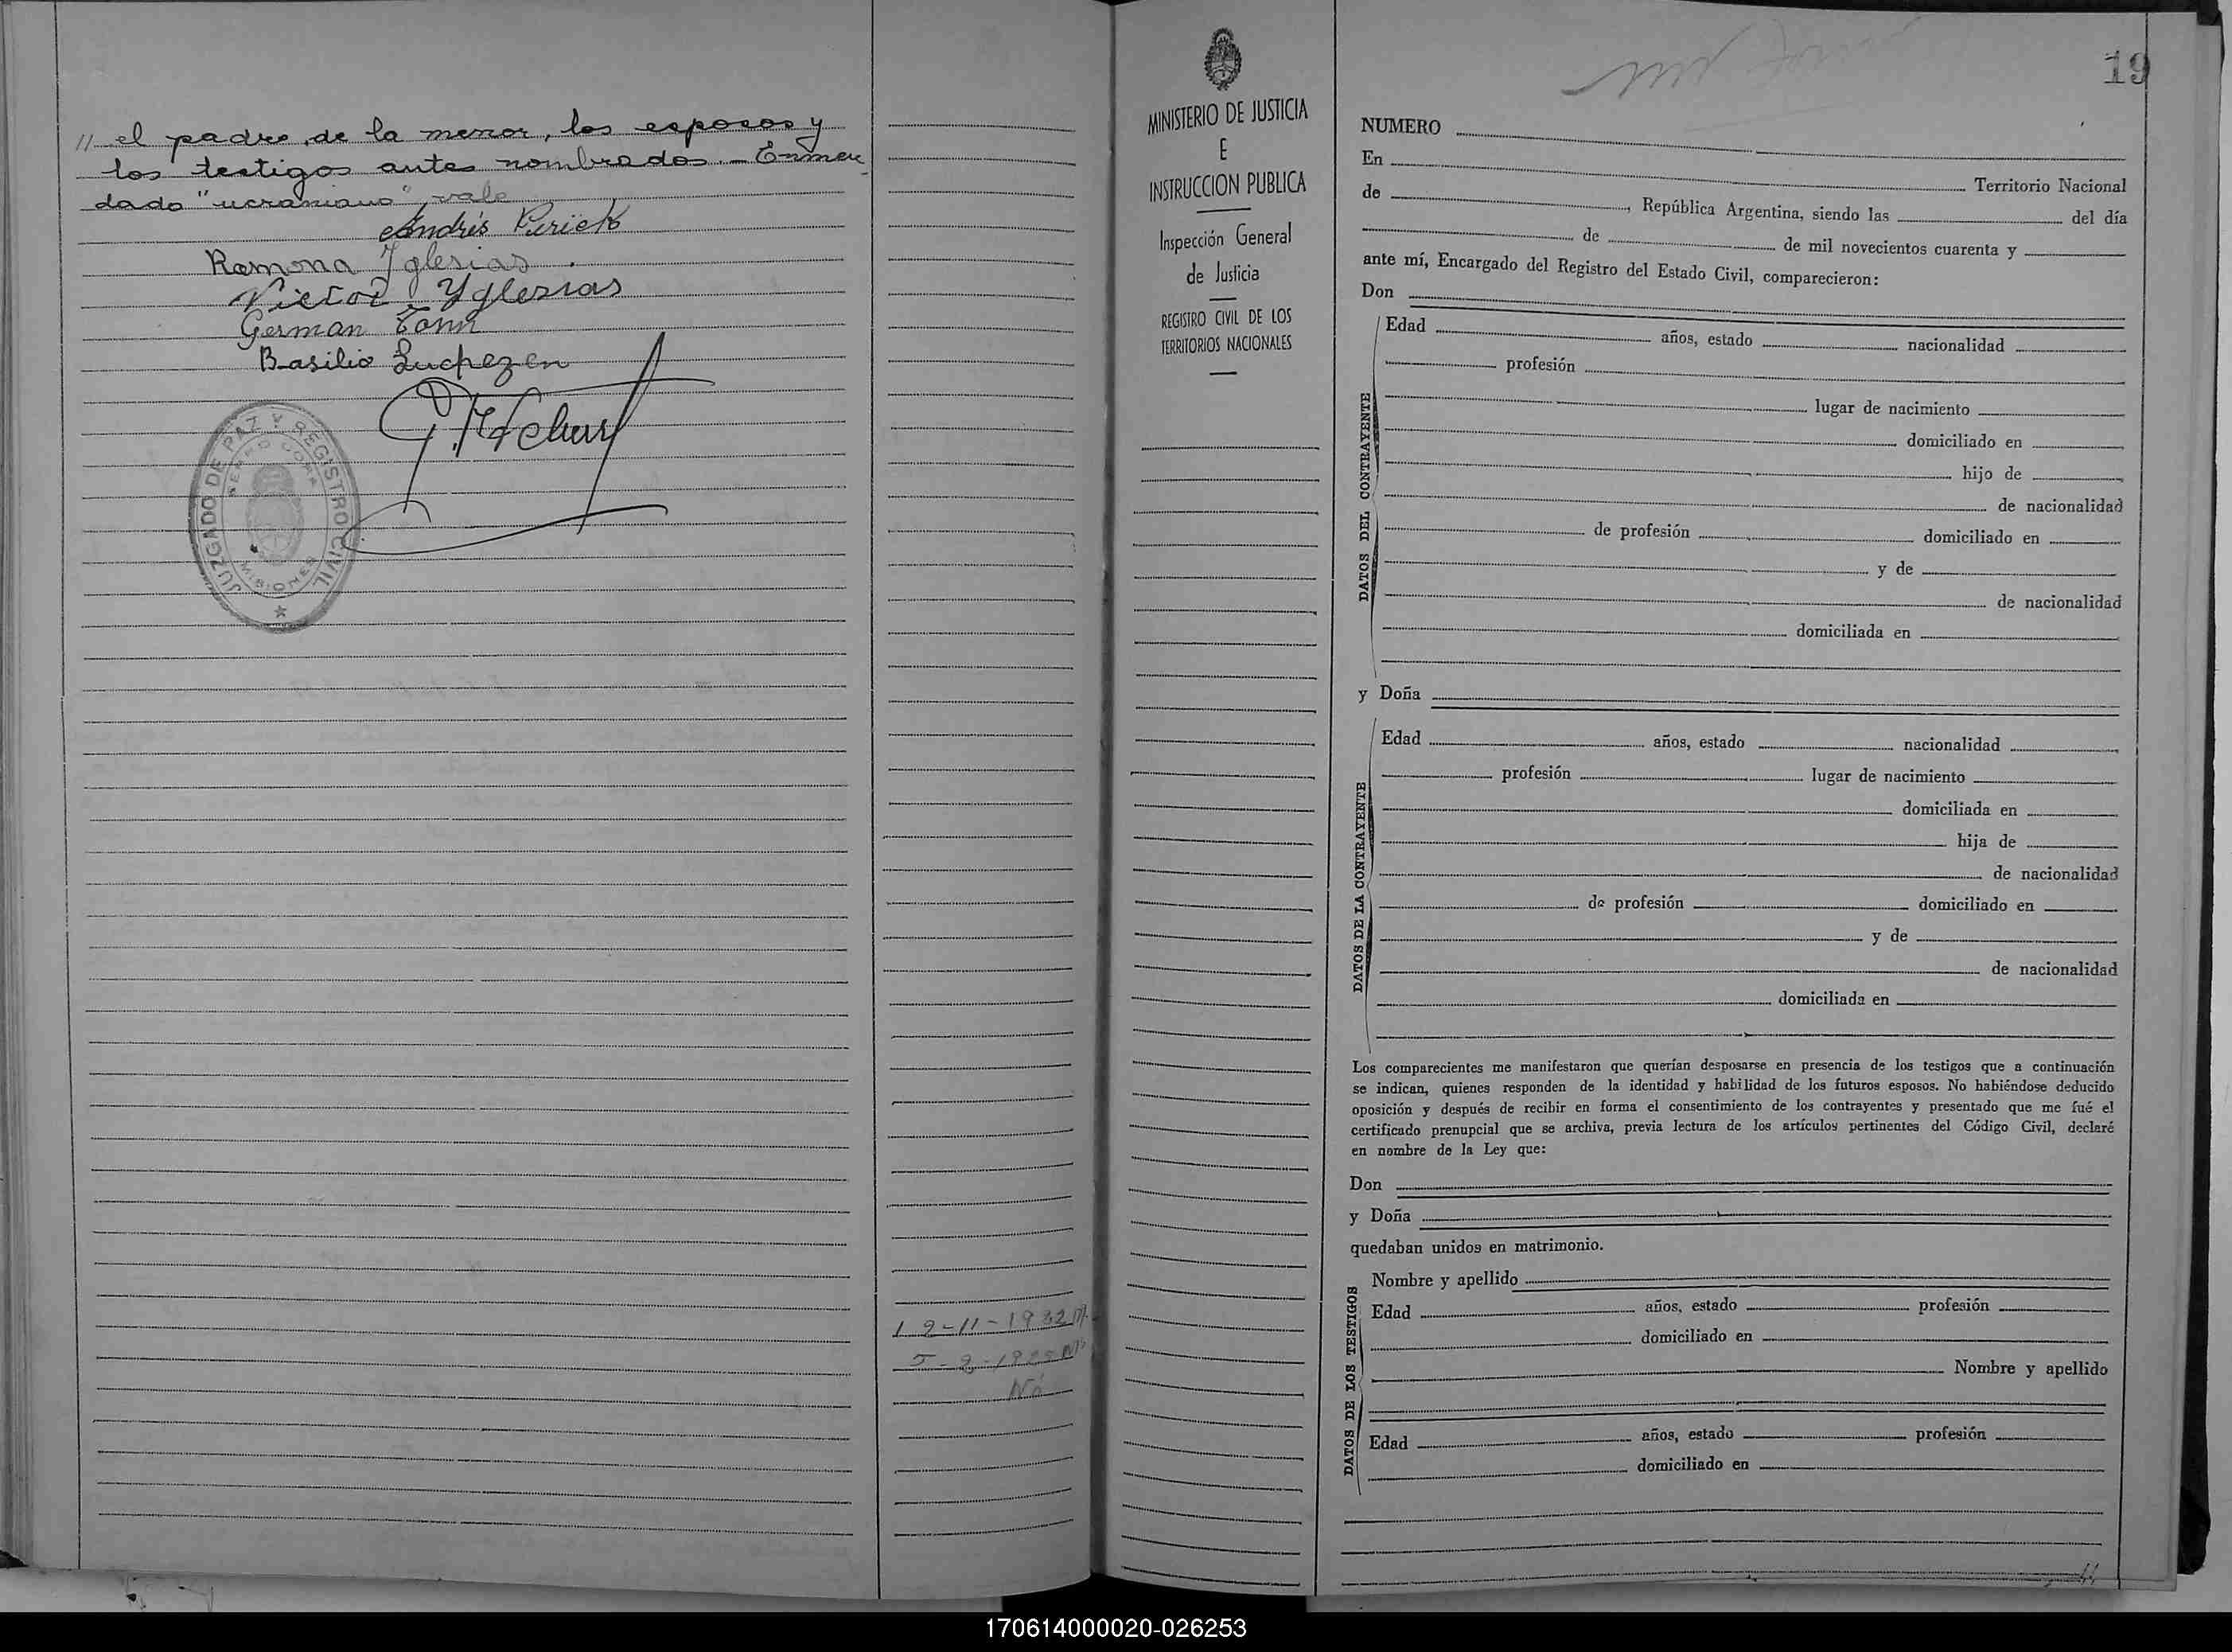 // el padre de la menor, los esposos y
los testigos antes nombrados.- Enmen-
dado "ucraniano", vale
Andrés Pirick
Ramona Yglesias.
Victor Yglesias
German Tonn
Basilio
JUZGADO DE PAZ Y REGISTRO CIVIL
CERRO CORA
MISIONES
12-11-1932
5-2-19
No
MINISTERIO DE JUSTICIA
E
INSTRUCCION PUBLICA
Inspección General
de Justicia
REGISTRO CIVIL DE LOS
TERRITORIOS NACIONALES
19
NUMERO
En Territorio Nacional
de , República Argentina, siendo las del día
de de mil novecientos cuarenta y
ante mí, Encargado del Registro del Estado Civil, comparecieron:
Don
DATOS DEL CONTRAYENTE
Edad años, estado nacionalidad
profesión
lugar de nacimiento
domiciliado en
hijo de
de nacionalidad
de profesión domiciliado en
y de
de nacionalidad
domiciliada en
y Doña
DATOS DE LA CONTRAYENTE
Edad años, estado nacionalidad
profesión lugar de nacimiento
domiciliada en
hija de
de nacionalidad
de profesión domiciliado en
y de
de nacionalidad
domiciliada en
Los comparecientes me manifestaron que querían desposarse en presencia de los testigos que a continuación
se indican, quienes responden de la identidad y habilidad de los futuros esposos. No habiéndose deducido
oposición y después de recibir en forma el consentimiento de los contrayentes y presentado que me fué el
certificado prenupcial que se archiva, previa lectura de los artículos pertinentes del Código Civil, declaré
en nombre de la Ley que:
Don
y Doña
quedaban unidos en matrimonio.
DATOS DE LOS TESTIGOS
Nombre y apellido
Edad años, estado profesión
domiciliado en
Nombre y apellido
Edad años, estado profesión
domiciliado en
170614000020-026253